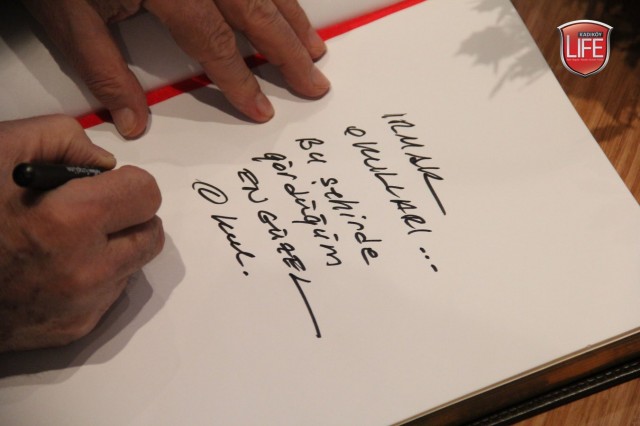 IRMAK
OKULLARI...
Bu şehirde
gördüğüm
EN GÜZEL
@kul.
KADIKÖY
LIFE